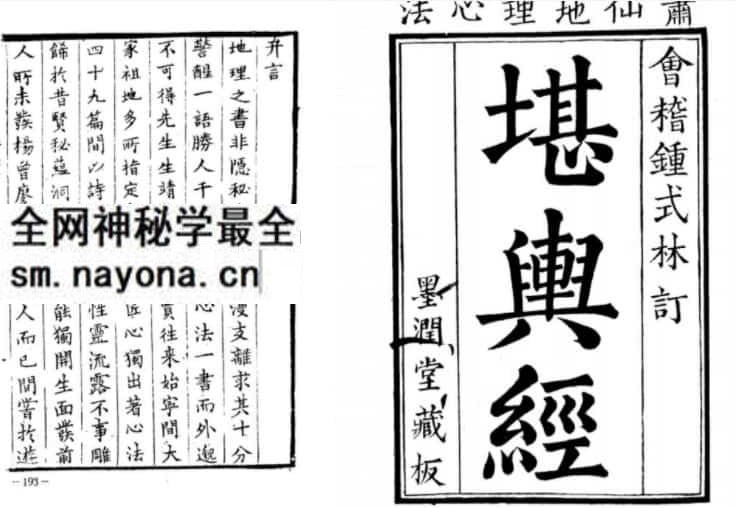 蕭仙地理心法
會稽鍾式林訂
堪輿經
墨潤堂藏板
弁言
地理之書非隱秘 支離求其十分
警醒一語勝人千 心法一書而外邈
不可得先生生靖 往來始寧間大
家祖地多所指定 心獨出著心法
四十九篇間以詩 性靈流露不事雕
歸於昔賢秘蘊洞 能獨開生面發前
人所未發楊曾廖 人而已間嘗於遊
全网神秘学最全
sm.nayona.cn
-193-